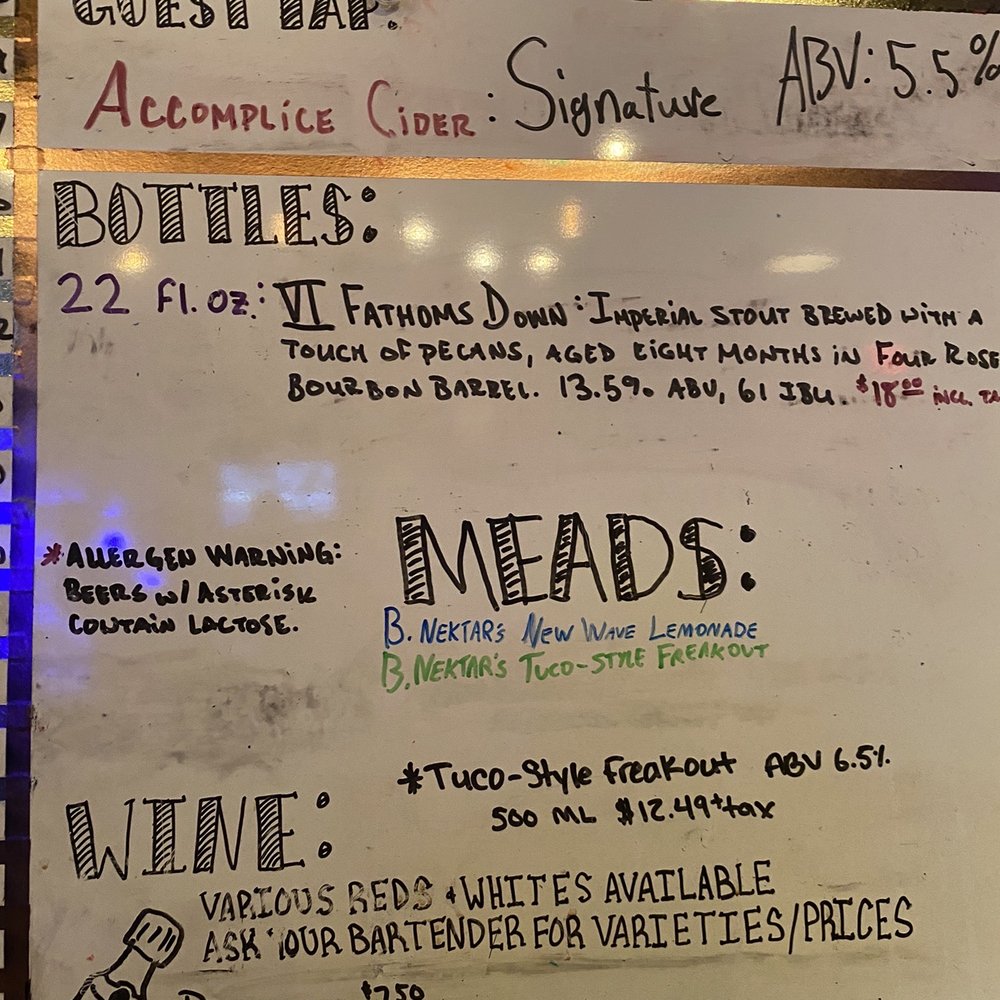 GUEST TAP:
ACCOMPLICE CIDER: Signature ABV: 5.5%
BOTTLES:
22 Fl. oz: VI FATHOMS DOWN: IMPERIAL STOUT BREWED WITH A
TOUCH OF PECANS, AGED EIGHT MONTHS IN FOUR ROSE
BOURBON BARREL. 13.5% ABV, 61 IBU. $18.00 INCL. TA
*ALLERGEN WARNING:
BEERS W/ ASTERISK
CONTAIN LACTOSE.
MEADS:
B. NEKTAR'S NEW WAVE LEMONADE
B. NEKTAR'S TUCO-STYLE FREAKOUT
*Tuco-Style Freakout ABV 6.5%
500 ML $12.49+tax
WINE:
VARIOUS REDS + WHITES AVAILABLE
ASK YOUR BARTENDER FOR VARIETIES/PRICES
$7.50